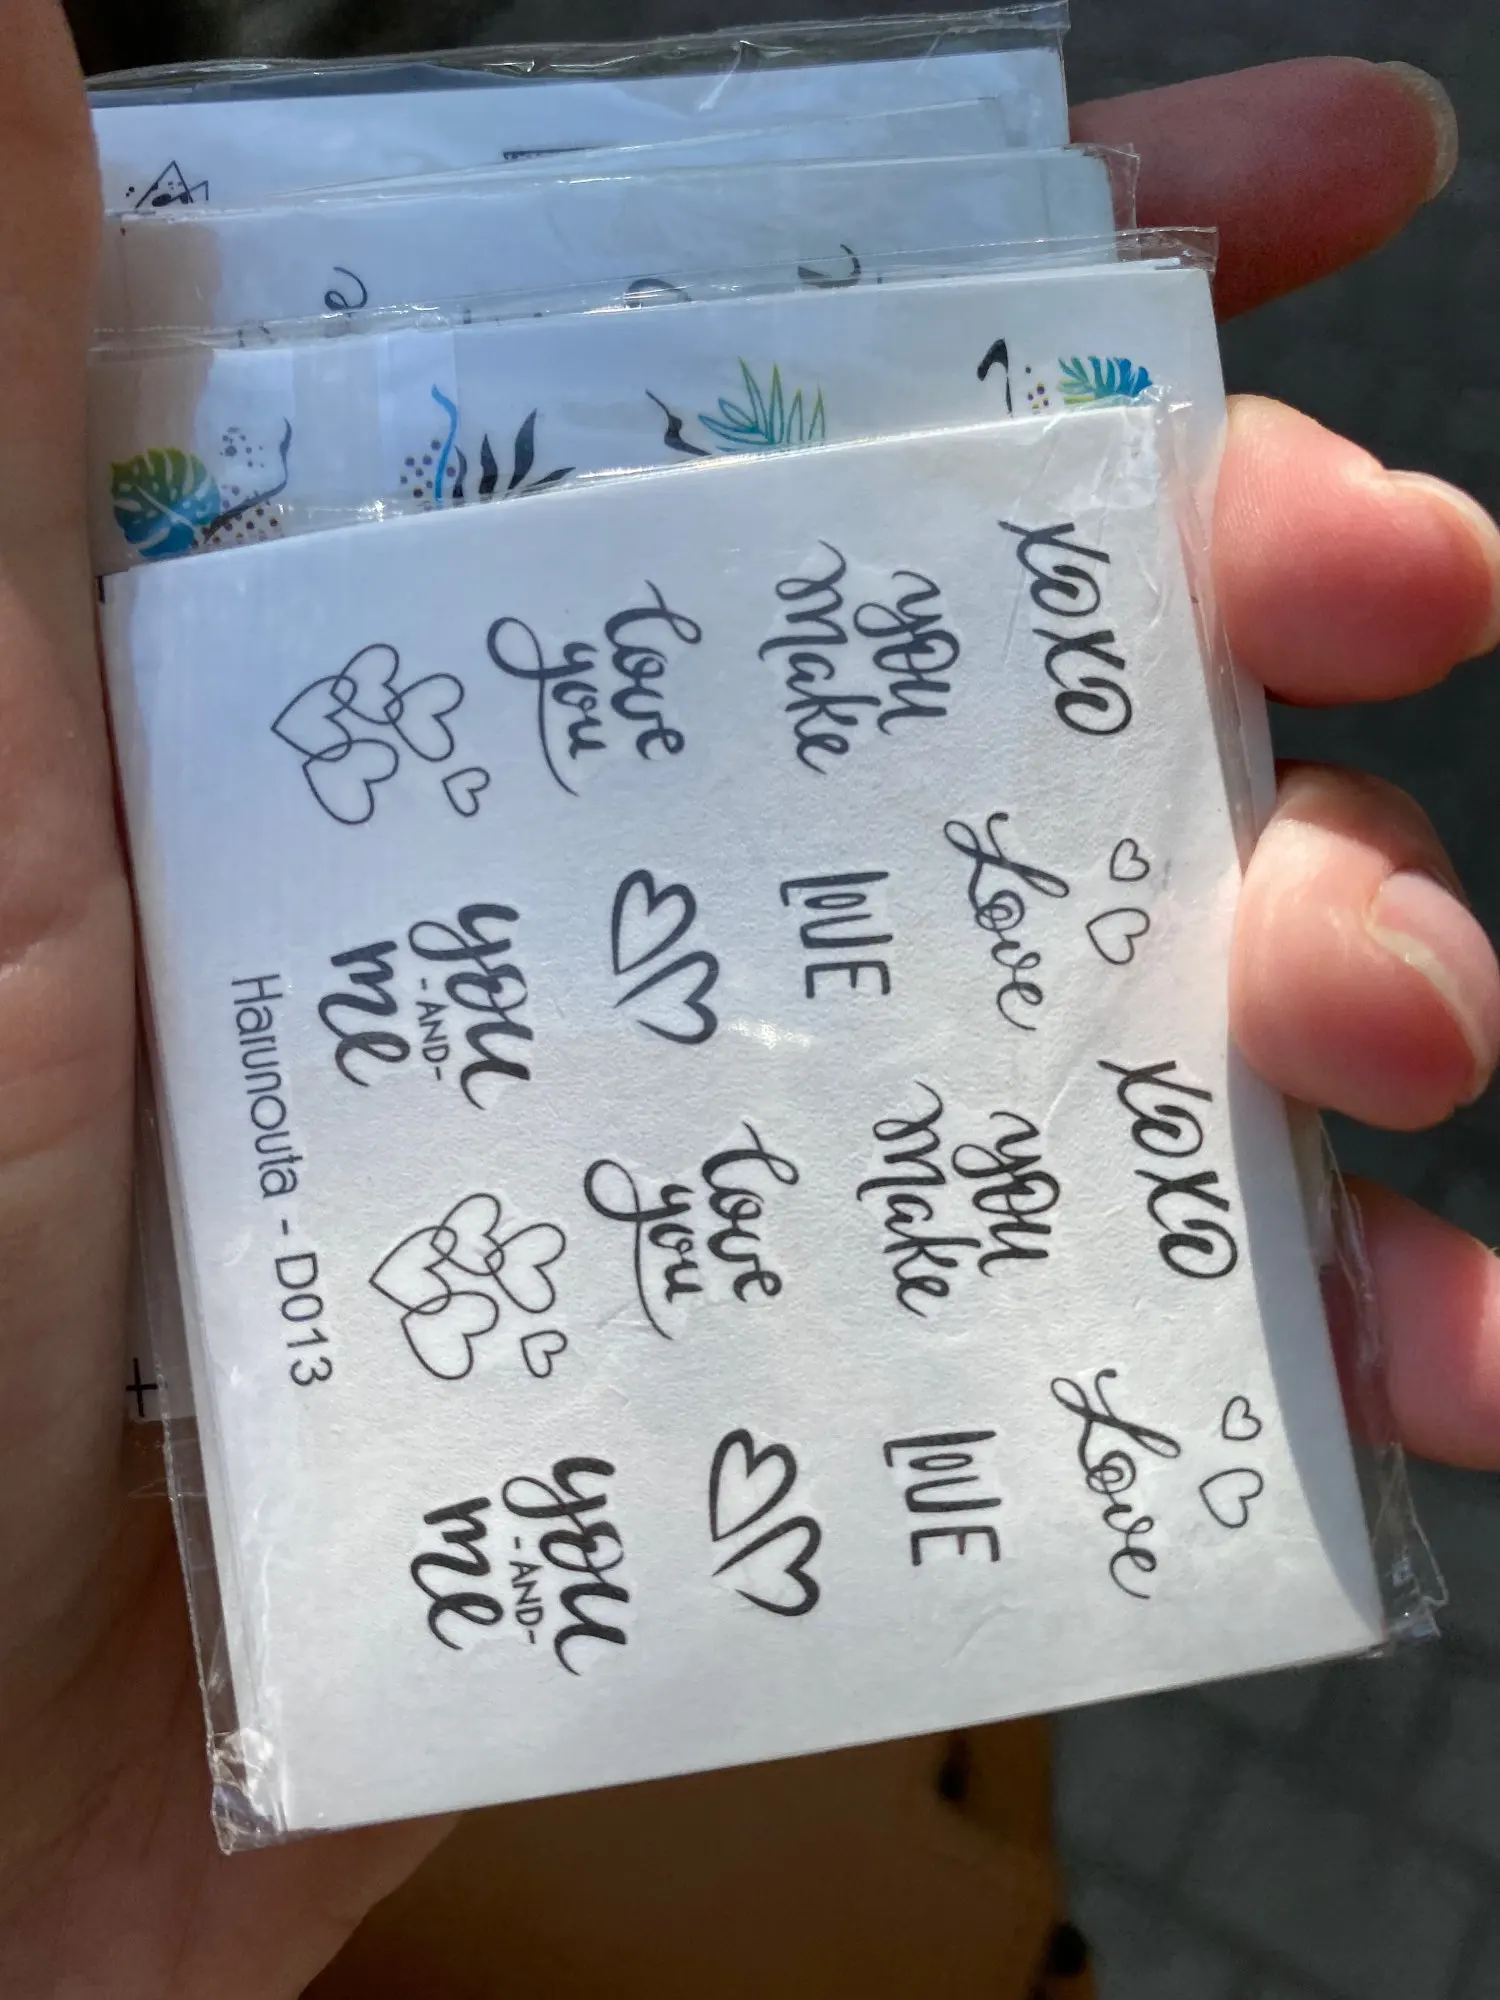 XOXO
Love
XOXO
Love
you
make
LOVE
you
make
LOVE
love
you
love
you
you
- AND -
me
you
- AND -
me
Harunouta - D013